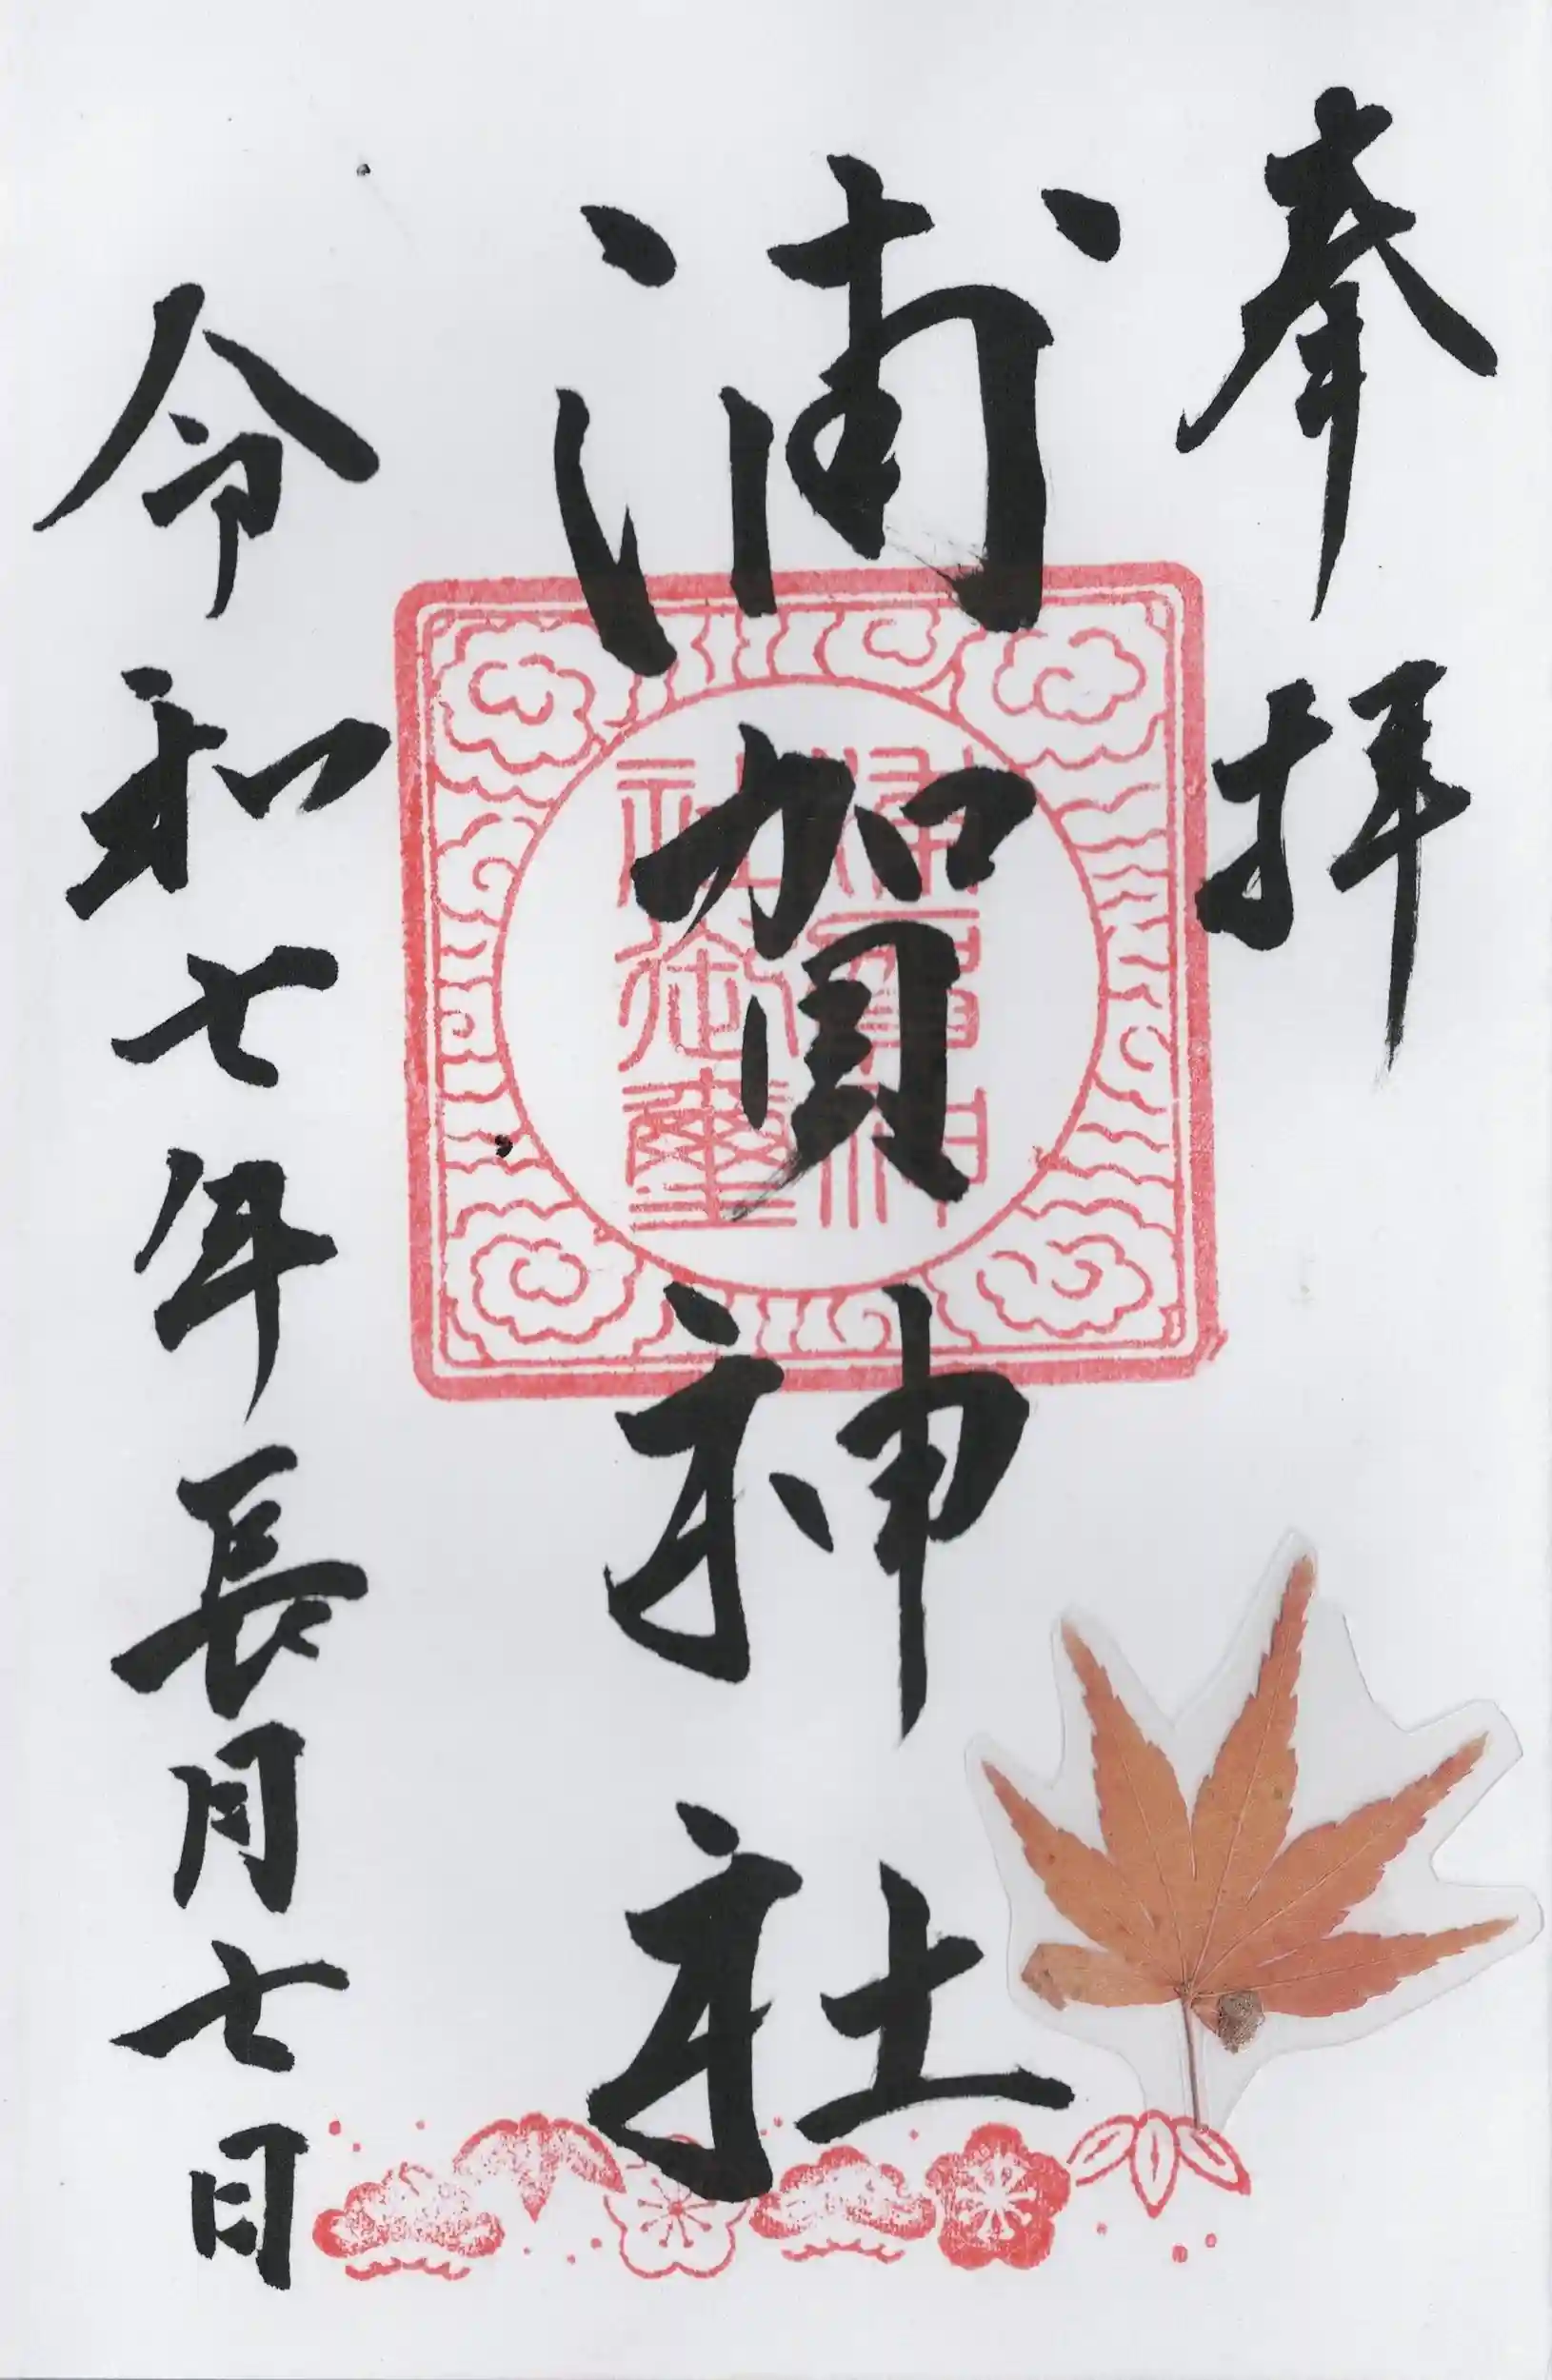 奉拝
浦賀神社
浦賀神社御璽
令和七年長月七日